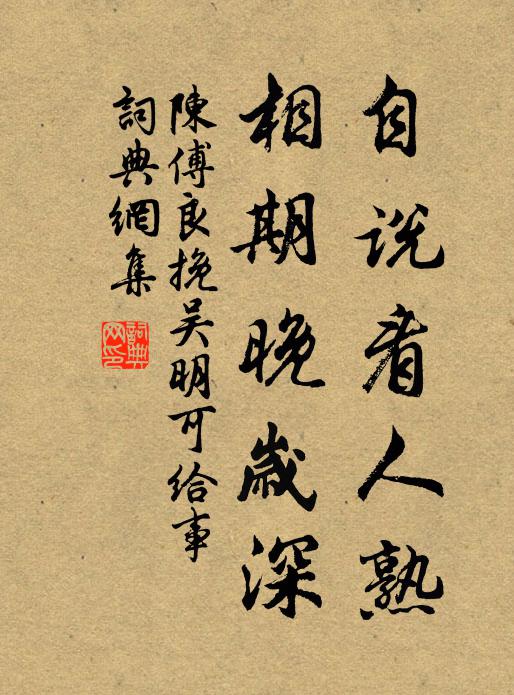 自说看人熟
相期晚歲深
陳傅良挽吴明可給事
詞典網集
詞典
网印